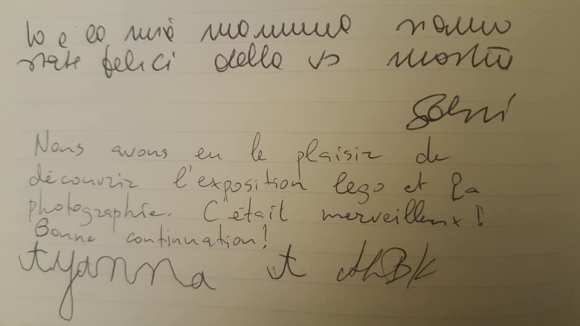 Io e la mia mamma siamo
state felici della vs mostra
Nous avons eu le plaisir de
découvrir l'exposition lego et la
photographie. C'était merveilleux!
Bonne continuation!
Ayanna et